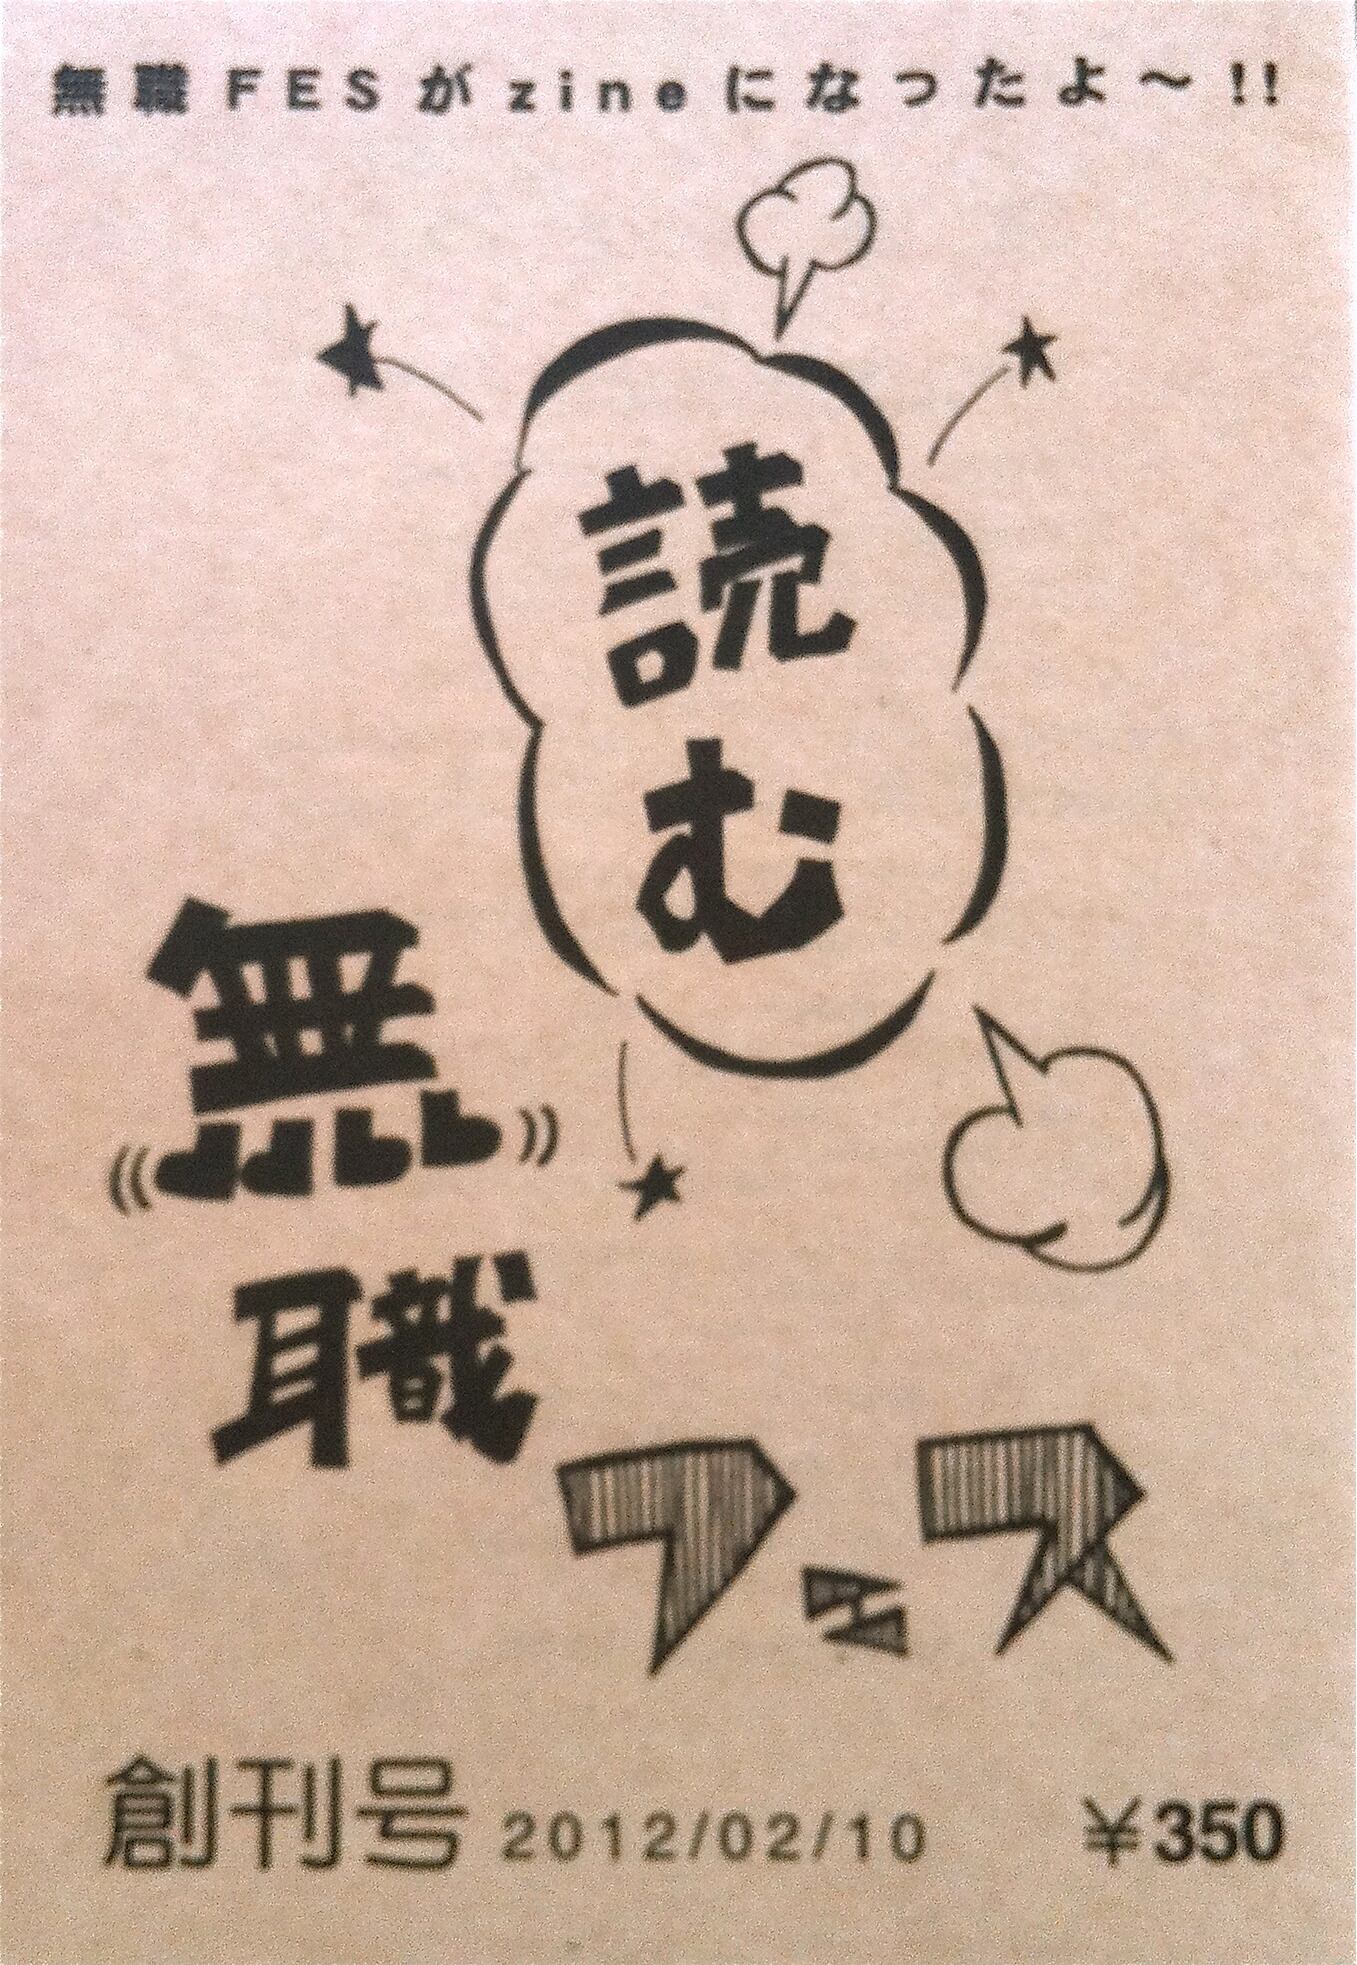 無職FESがzineになったよ～!!
読む
無職
フェス
創刊号 2012/02/10 ¥350